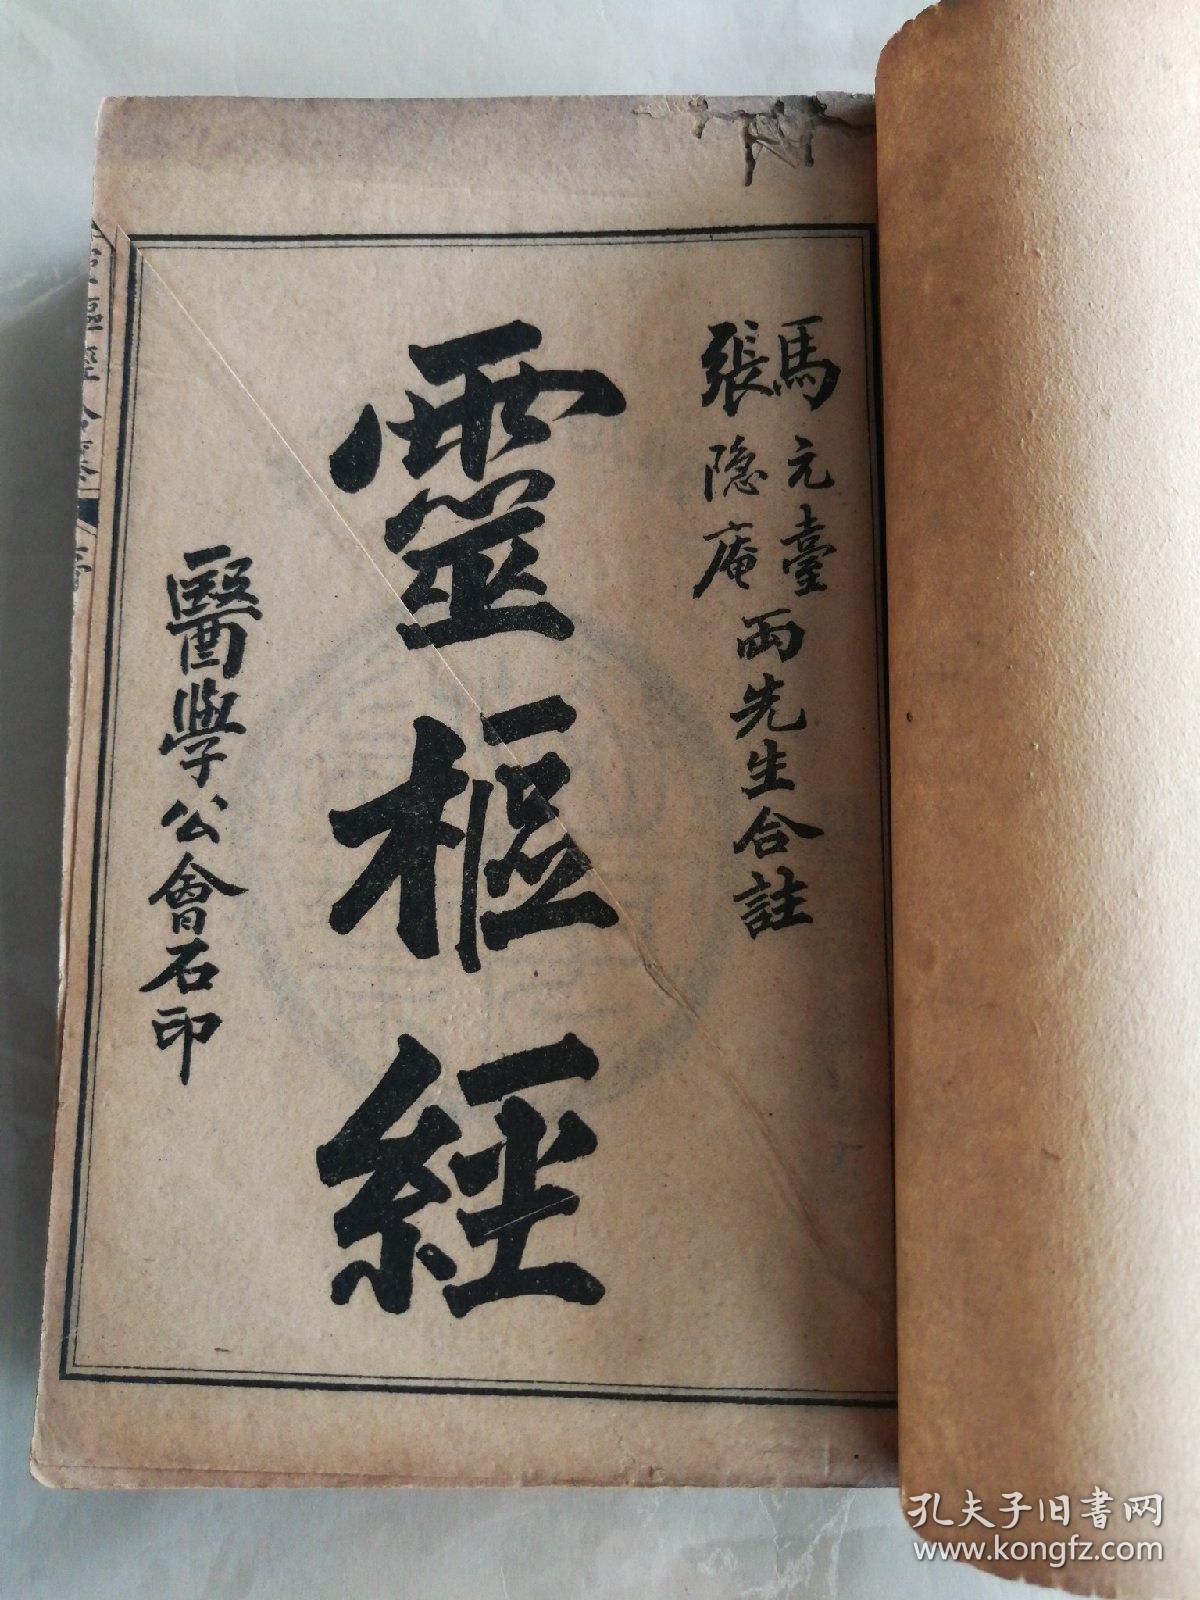 馬元臺
張隐庵
兩先生合註
靈樞經
醫學公會石印
孔夫子旧书网
www.kongfz.com